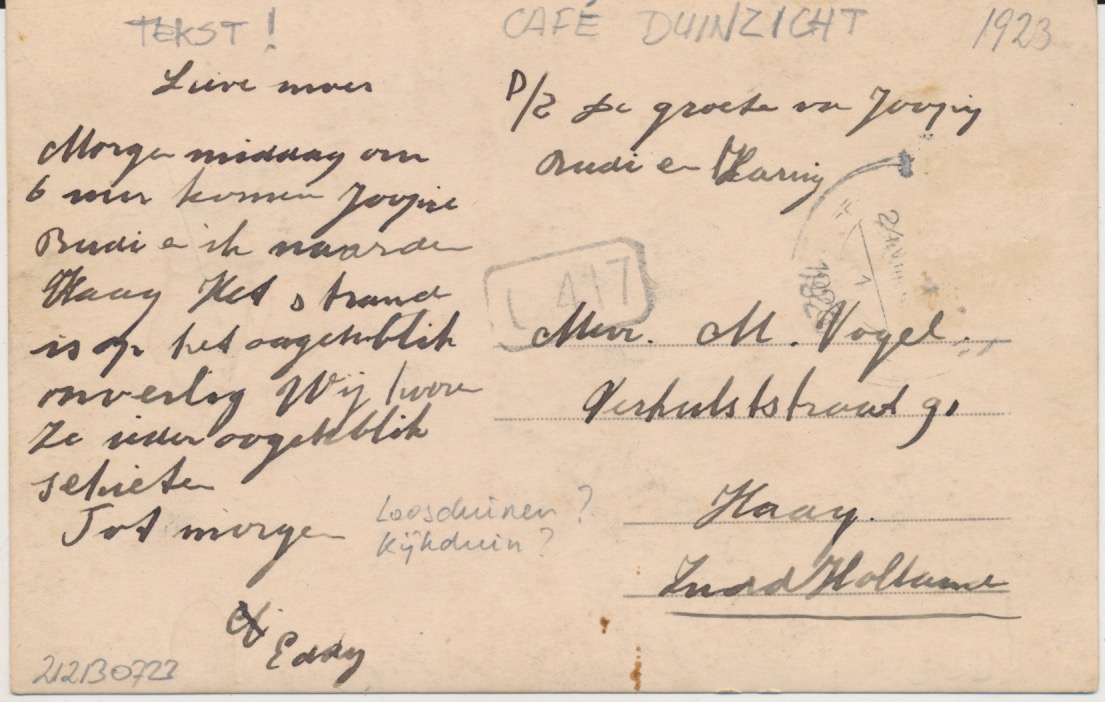 TEKST!
CAFÉ DUINZICHT
1923
Lieve moes
Morgen middag om
6 uur komen Joopie
Rudi en ik naar den
Haag Het strand
is op het oogenblik
onveilig Wij hooren
Ze ieder oogenblik
schieten
Tot morgen
Eddy
P/Z de groeten van
Rudi en
L 417
Mevr. M. Vogel.
Verhulststraat 91
Haag.
Zuid Holland
Loosduinen ?
Kijkduin ?
212130723